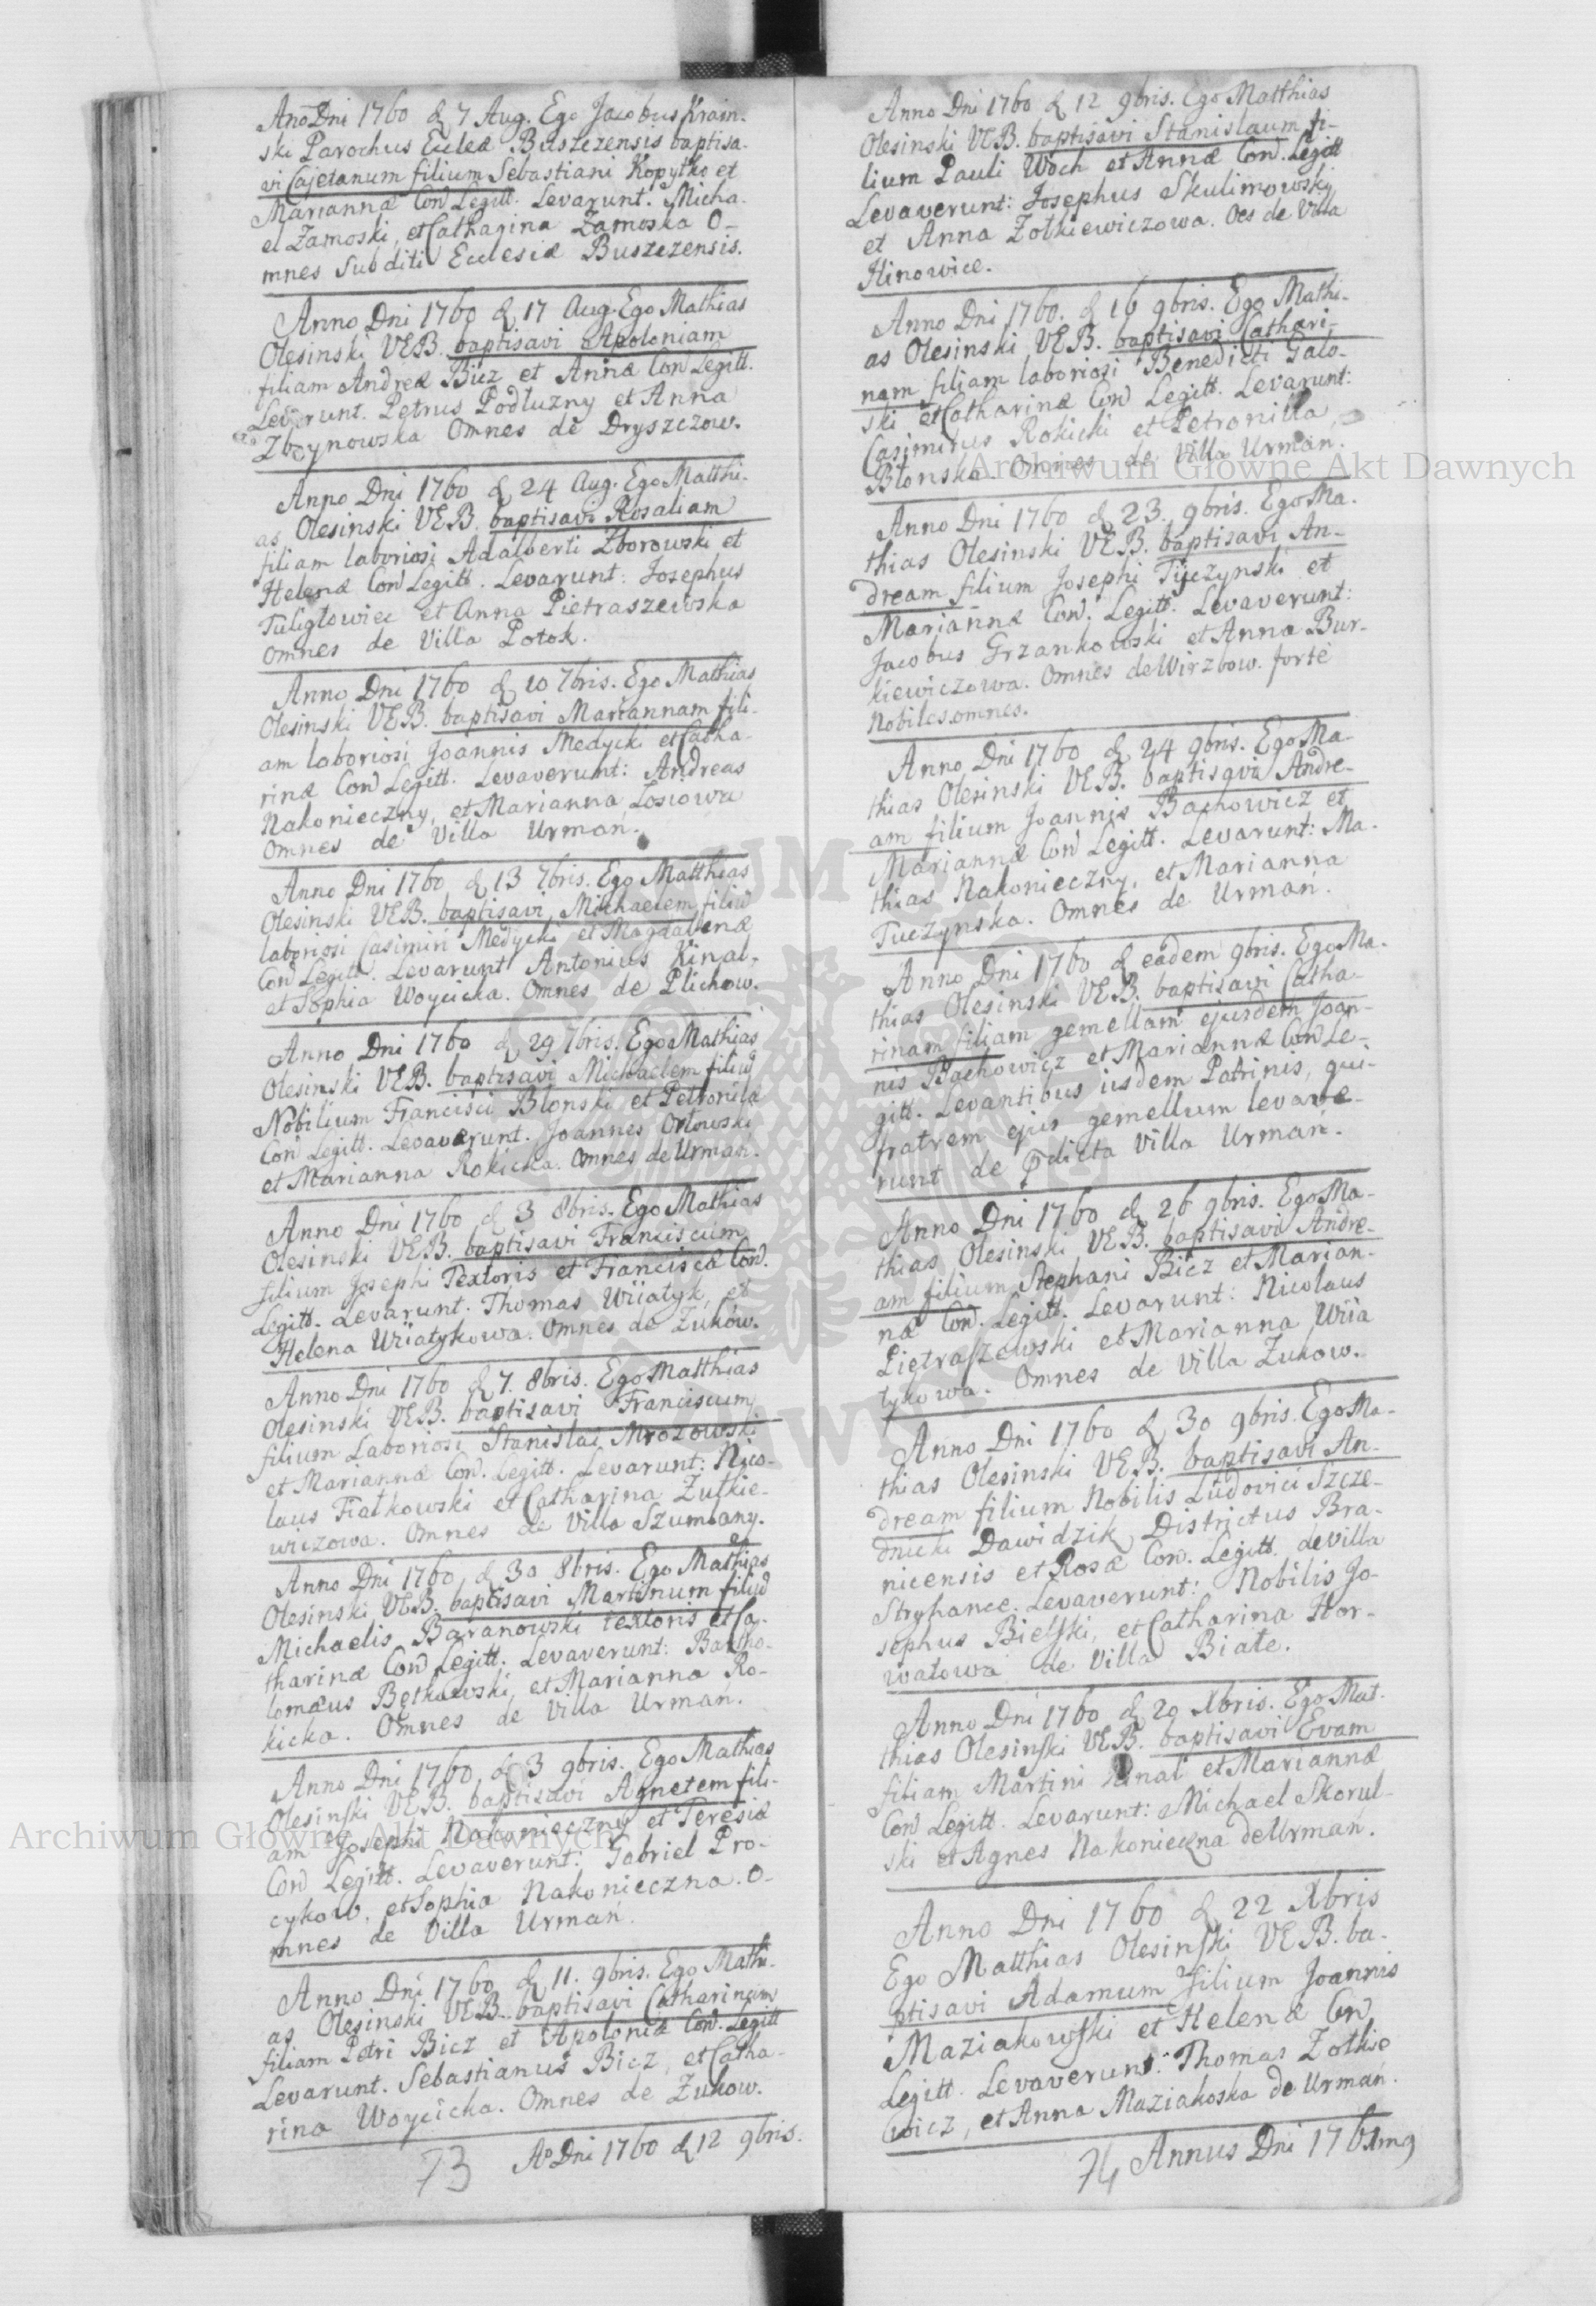 Ano Dni 1760 d 7 Aug. Ego Jacobus Krain-
ski Parochus Eccleæ Buszczensis baptisa-
vi Cajetanum filium Sebastiani Kopytko et
Mariannæ Con Legitt. Levarunt. Micha-
el Zamoski, et Catharina Zamoska O-
mnes Subditi Ecclesiæ Buszczensis.
Anno Dni 1760 d 17 Aug. Ego Mathias
Olesinski VEB. baptisavi Apoloniam
filiam Andreæ Bicz et Annæ Con Legitt.
Levarunt. Petrus Podluzny et Anna
Zboynowska Omnes de Dryszczow.
Anno Dni 1760 d 24 Aug. Ego Matthi-
as Olesinski VEB. baptisavi Rosaliam
filiam laboriosi Adalberti Zborowski et
Helenæ Con Legitt. Levarunt: Josephus
Tuligłowiec et Anna Pietraszewska
Omnes de Villa Potok.
Anno Dni 1760 d 10 7bris. Ego Mathias
Olesinski VEB. baptisavi Mariannam fili-
am laboriosi Joannis Medycki et Catha-
rinæ Con Legitt. Levaverunt: Andreas
Nakonieczny, et Marianna Łosiowa
Omnes de Villa Urmań.
Anno Dni 1760 d 13 7bris. Ego Matthias
Olesinski VEB. baptisavi Michaelem filiu
laboriosi Casimiri Medycki et Magdalenæ
Con Legitt. Levarunt Antonius Kinal,
et Sophia Woycicka. Omnes de Plichow.
Anno Dni 1760 d 29 7bris. Ego Mathias
Olesinski VEB. baptisavi Michaelem filiu
Nobilium Francisci Blonski et Petronilæ
Con Legitt. Levaverunt. Joannes Orłowski
et Marianna Rokicka. Omnes de Urmań.
Anno Dni 1760 d 3 8bris. Ego Mathias
Olesinski VEB. baptisavi Franciscum
filium Josephi Textoris et Franciscæ Con.
Legitt. Levarunt. Thomas Wiiatyk, et
Helena Wiiatykowa. Omnes de Zuków.
Anno Dni 1760 d 7. 8bris. Ego Matthias
Olesinski VEB. baptisavi Franciscum
filium Laboriosi Stanislai Mrozowski
et Mariannæ Con. Legitt. Levarunt: Nico-
laus Fiałkowski et Catharina Zułkie-
wiczowa. Omnes de Villa Szumlany.
Anno Dni 1760 d 30 8bris. Ego Mathias
Olesinski VEB. baptisavi Martinum filiu
Michaelis Baranowski textoris et Ca-
tharinæ Con Legitt. Levaverunt: Bartho-
lomæus Bętkowski, et Marianna Ro-
kicka. Omnes de Villa Urmań.
Anno Dni 1760 d 3 9bris. Ego Mathias
Olesinski VEB. baptisavi Agnetem fili-
am Josephi Nakonieczny et Teresiæ
Con Legitt. Levaverunt: Gabriel Pro-
cykow, et Sophia Nakonieczna. O-
mnes de Villa Urmań.
Anno Dni 1760 d 11. 9bris. Ego Mathi-
as Olesinski VEB. baptisavi Catharinam
filiam Petri Bicz et Apoloniæ Con. Legitt
Levarunt. Sebastianus Bicz, et Catha-
rina Woycicka. Omnes de Zukow.
73 Ao Dni 1760 d 12 9bris.
Anno Dni 1760 d 12 9bris. Ego Matthias
Olesinski VEB. baptisavi Stanislaum fi-
lium Pauli Woch et Annæ Con. Legitt
Levaverunt: Josephus Skulimowsky
et Anna Zołkiewiczowa. Oes de Villa
Hinowice.
Anno Dni 1760. d 16 9bris. Ego Mathi-
as Olesinski VEB. baptisavi Cathari-
nam filiam laboriosi Benedicti Galo-
ski et Catharinæ Con Legitt. Levarunt:
Casimirus Rokicki et Petronilla
Blonska. Omnes de Villa Urmań.
Anno Dni 1760 d 23. 9bris. Ego Ma-
thias Olesinski VEB. baptisavi An-
dream filium Josephi Tyczynski et
Mariannæ Con. Legitt. Levaverunt:
Jacobus Grzankowski et Anna Bur-
kiewiczowa. Omnes de Wirzbow. forte
Nobiles omnes.
Anno Dni 1760 d 24 9bris. Ego Ma-
thias Olesinski VEB. baptisavi Andre-
am filium Joannis Bachowicz et
Mariannæ Con Legitt. Levarunt: Ma-
thias Nakonieczny, et Marianna
Tuczynska. Omnes de Urmań.
Anno Dni 1760 d eadem 9bris. Ego Ma-
thias Olesinski VEB. baptisavi Catha-
rinam filiam gemellam ejusdem Joan-
nis Bachowicz et Mariannæ Con Le-
gitt. Levantibus iisdem Patrinis, qui
fratrem ejus gemellum levave-
runt de pdicta Villa Urmań.
Anno Dni 1760 d 26 9bris. Ego Ma-
thias Olesinski VEB. baptisavi Andre-
am filium Stephani Bicz et Marian-
næ Con. Legitt. Levarunt: Nicolaus
Pietraszewski et Marianna Wiia
tykowa. Omnes de Villa Zukow.
Anno Dni 1760 d 30 9bris. Ego Ma-
thias Olesinski VEB. baptisavi An-
dream filium Nobilis Ludovici Szcze-
dnicki Dawidzik Districtus Bra-
nicensis et Rosæ Con. Legitt. de Villa
Stryhance. Levaverunt: Nobilis Jo-
sephus Bielski, et Catharina Hor-
watowa de Villa Białe.
Anno Dni 1760 d 20 Xbris. Ego Mat-
thias Olesinski VEB. baptisavi Evam
filiam Martini Kinal et Mariannæ
Con Legitt. Levarunt: Michael Skorul-
ski et Agnes Nakonieczna de Urmań.
Anno Dni 1760 d 22 Xbris
Ego Matthias Olesinski VEB. ba-
ptisavi Adamum filium Joannis
Maziakowski et Helenæ Con
Legitt. Levaverunt: Thomas Zołkie
wicz, et Anna Maziakoska de Urmań.
74 Annus Dni 1761mg
Archiwum Główne Akt Dawnych
Archiwum Główne Akt Dawnych